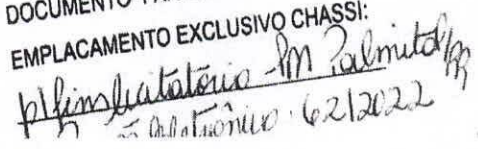 DOCUMENTO
EMPLACAMENTO EXCLUSIVO CHASSI:
p/ fins licitatório - PM Palmital/PR
Eletrônico. 62/2022